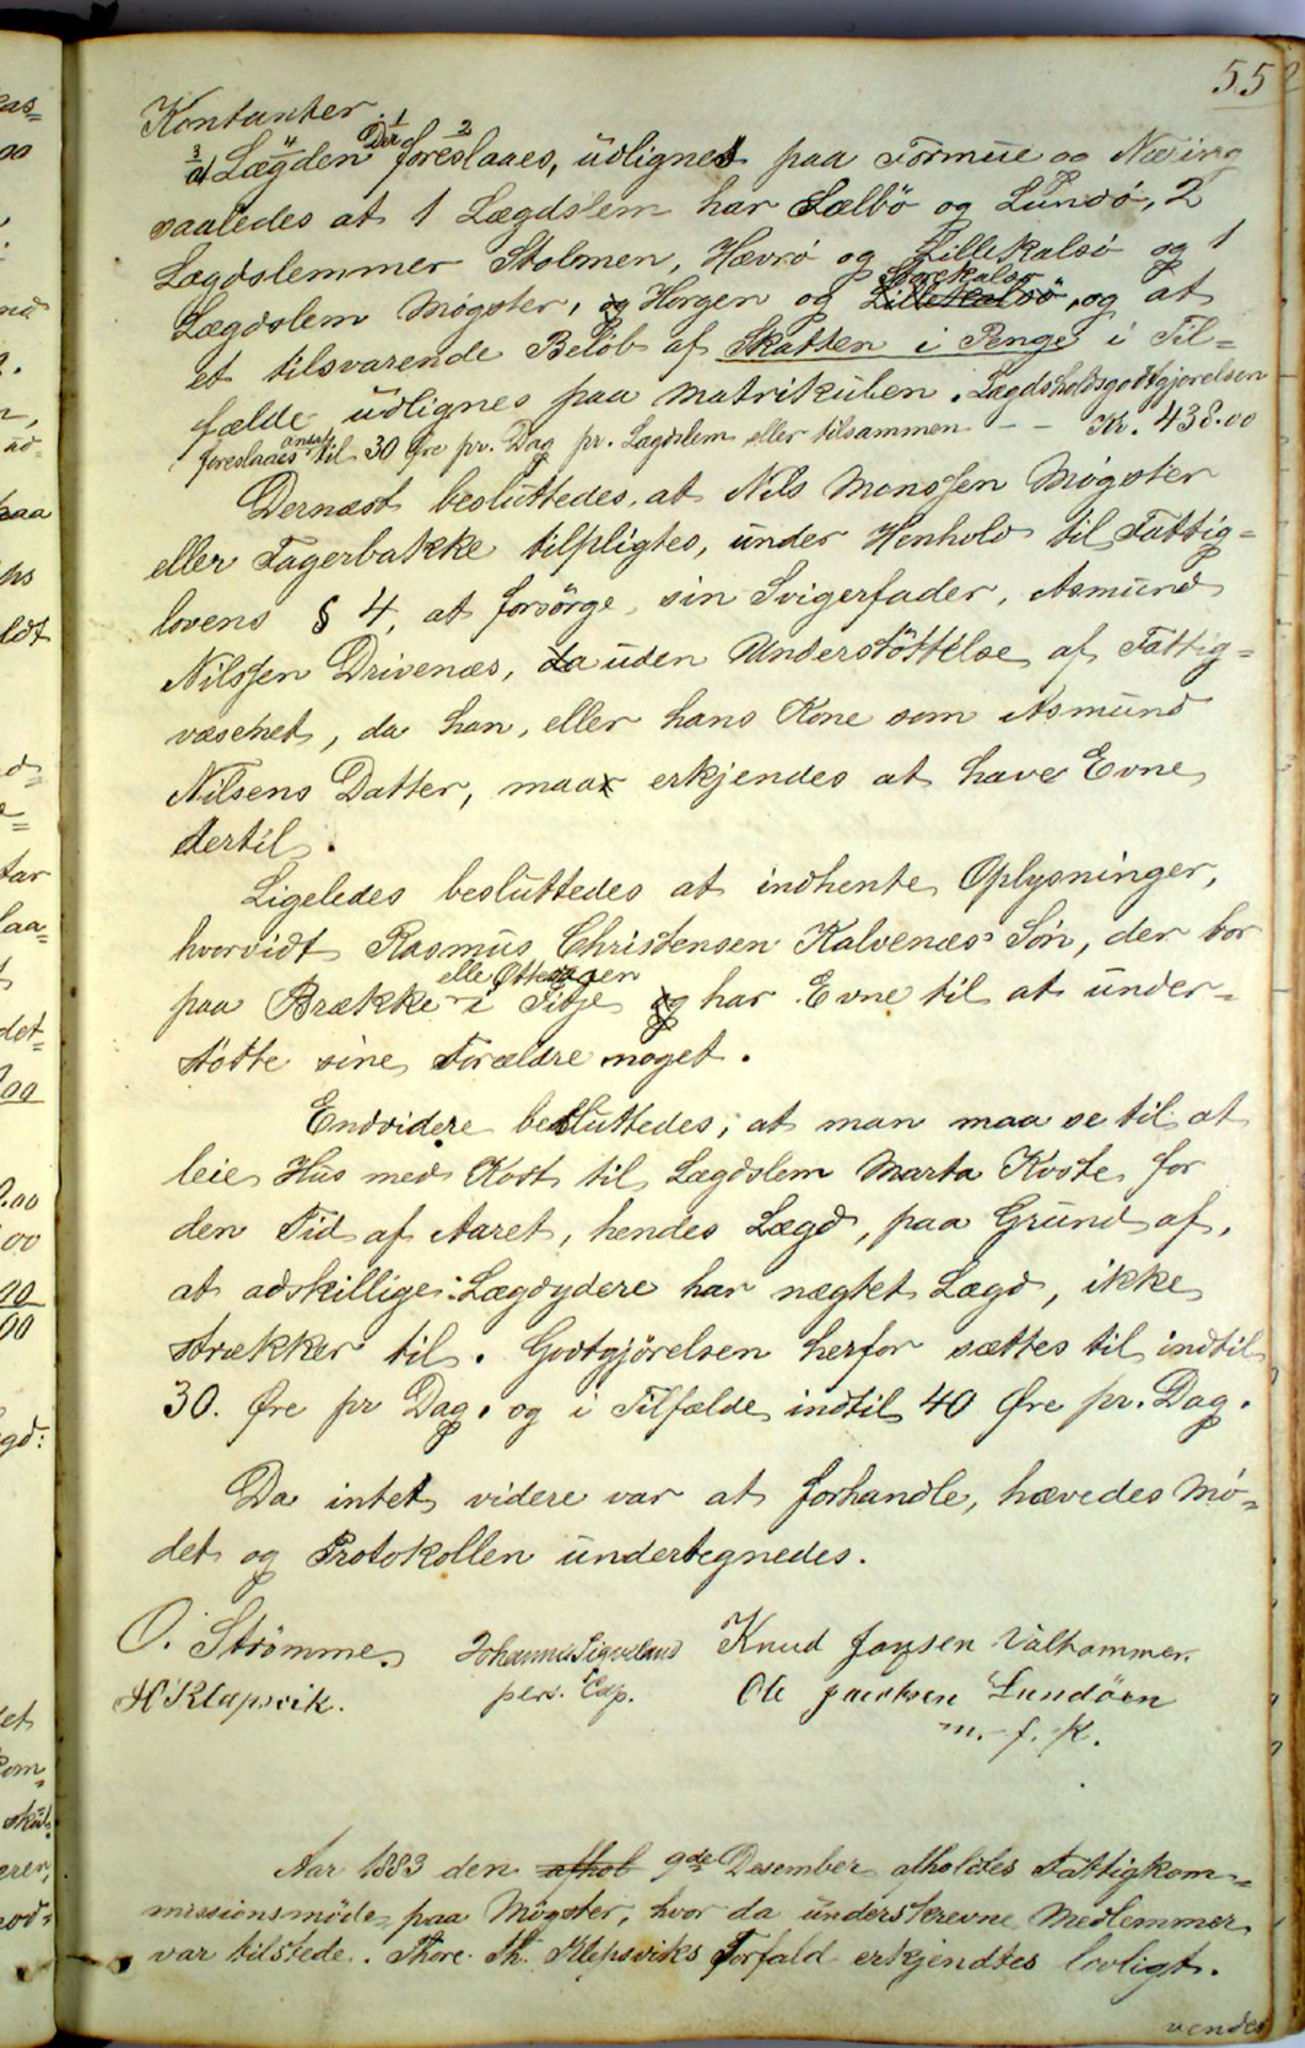 55
Kontanter.
a) Lægden Der foreslaaes, udlignes paa Formue og Næring
saaledes at 1 Lægdslem har Sælbö og Lundö, 2
Lægdslemmer Stolmen, Hævrö og Lillekalsö og 1
Lægdslem Mögster, og Horgen og Lillekalsö Storekalsö, og at
et tilsvarende Belöb af Skatten i Penge i Til=
fælde udlignes paa Matrikulen. Lægdsholdsgodtgjörelsen
foreslaaes ansat til 30 Øre pr. Dag pr. Lægdslem eller tilsammen - - Kr. 438.00
Dernæst besluttedes, at Nils Monssen Mögster
eller Fagerbakke tilpligtes, under Henhold til Fattig=
lovens § 4, at forsörge sin Svigerfader, Asmund
Nilssen Drivenæs, da uden Understöttelse af Fattig=
væsenet, da han, eller hans Kone som Asmund
Nilsens Datter, maa erkjendes at have Evne
dertil.
Ligeledes besluttedes at indhente Oplysninger,
hvorvidt Rasmus Christensen Kalvenæs' Sön, der bor
paa Brække eller i Fitje og har Evne til at under=
stötte sine Forældre noget.
Endvidere besluttedes, at man maa se til at
leie Hus med Kost til Lægdslem Marta Kvste for
den Tid af Aaret, hendes Lægd, paa Grund af,
at adskillige Lægdydere har nægtet Lægd, ikke
strækker til. Godtgjörelsen herfor sættes til indtil
30. Øre pr Dag. og i Tilfælde indtil 40 Øre pr. Dag.
Da intet videre var at forhandle, hævedes Mö=
det og Protokollen undertegnedes.
O. Strömme. Johannes Sigveland Knud Jansen Valhammer.
H Klepsvik. pers. Cap. Ole Jacobsen Lundöen
m. f. K.
Aar 1883 den afhol 9de Desember afholdtes Fattigkom=
missionsmöde paa Mögster, hvor da underskrevne Medlemmer
var tilstede. Thore Th. Klepsviks Forfald erkjendtes lovligt.
vendes